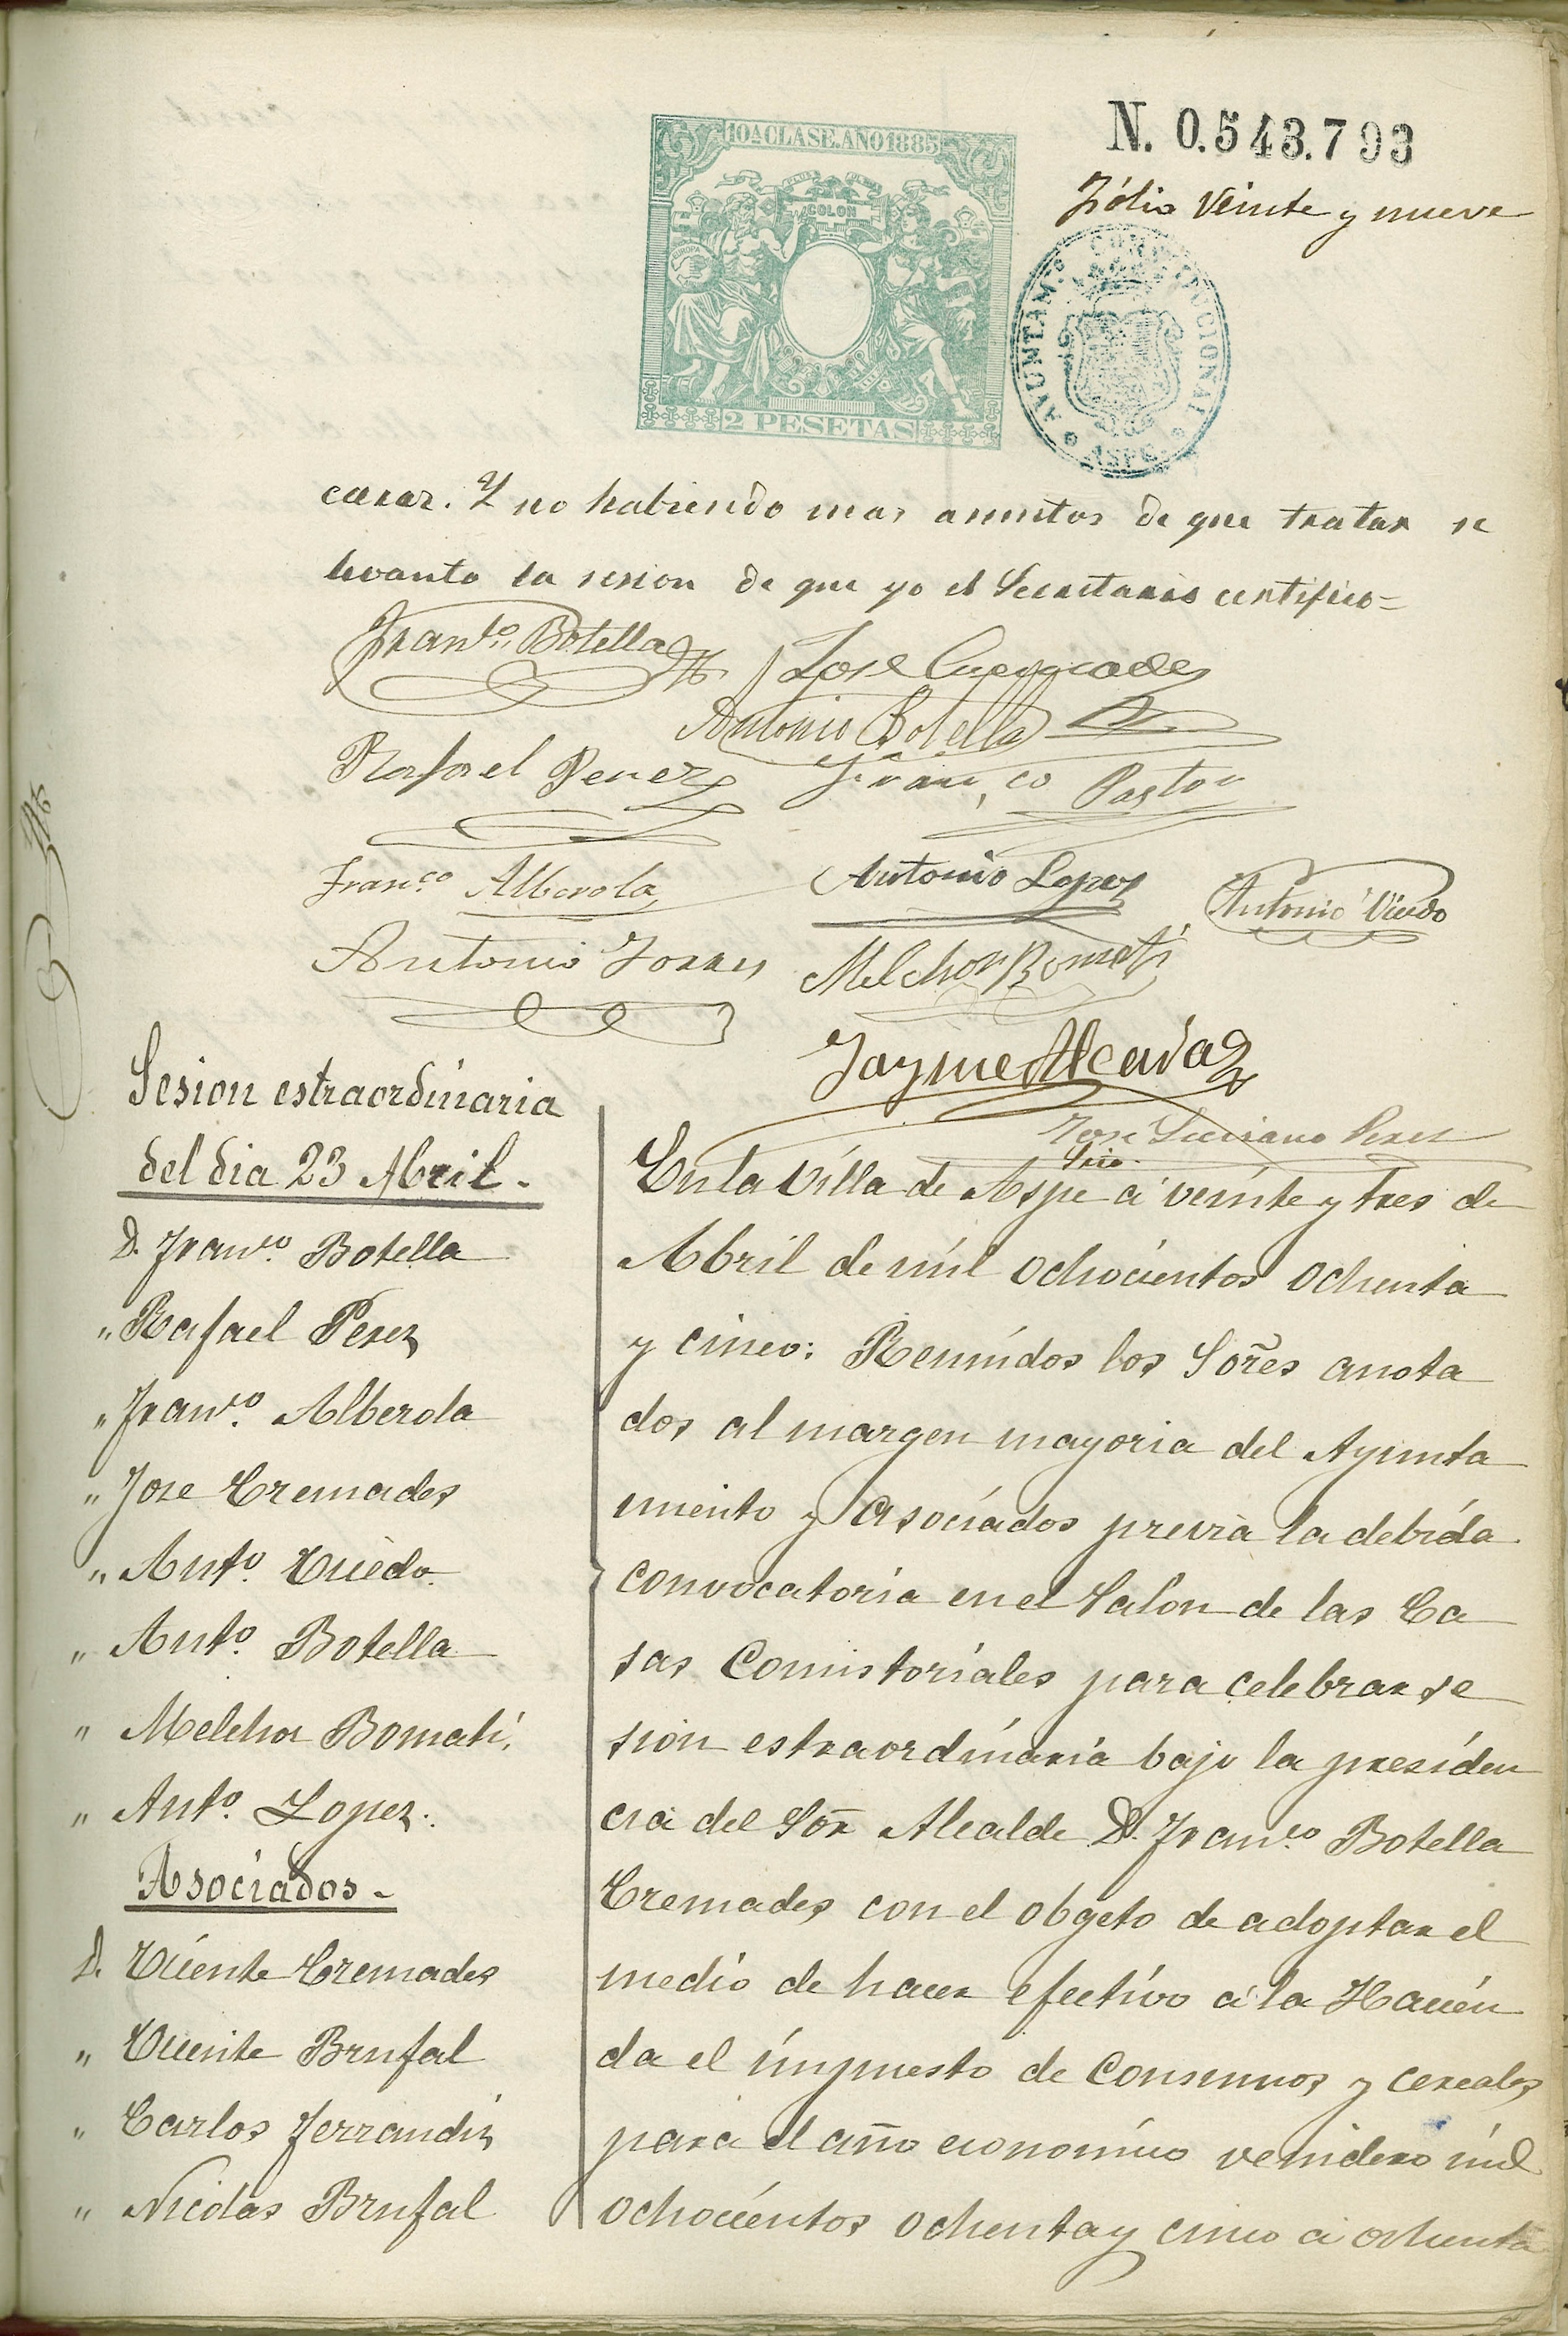 N. 0.543.793
Fólio veinte y nueve
10A CLASE. AÑO 1885
COLON
EUROPA
2 PESETAS
AYUNTAMTO CONSTITUCIONAL
ASPE
carar. Y no habiendo mas asuntos de que tratar se
levanto la sesion de que yo el Secretario certifico=
Franco. Botella
Jose Cremades
Antonio Botella
Rafael Perez
Franco Pastor
Franco Alberola
Antonio Lopez
Antonio Vicedo
Antonio Torres
Melchor Bomati
Jayme Alcaraz
Jose Luciano Perez
Srio.
Sesion estraordinaria
del dia 23 Abril.
D. Franco. Botella
" Rafael Perez
" Franco. Alberola
" Jose Cremades
" Anto. Vicedo.
" Anto. Botella
" Melchor Bomati.
" Anto. Lopez.
Asociados.
D. Vicente Cremades
" Vicente Brufal
" Carlos Ferrandiz
" Nicolas Brufal
En la Villa de Aspe á veinte y tres de
Abril de mil ochocientos ochenta
y cinco: Reunidos los Sores anota
dos al margen mayoria del Ayunta
miento y Asociados previa la debida
convocatoria en el Salon de las Ca
sas Consistoriales para celebrar se
sion estraordinaria bajo la presiden
cia del Sor Alcalde D. Franco Botella
Cremades con el obgeto de adoptar el
medio de hacer efectivo á la Hacien
da el impuesto de Consumos y cereales
para el año economico venidero mil
ochocientos ochenta y cinco á ochenta